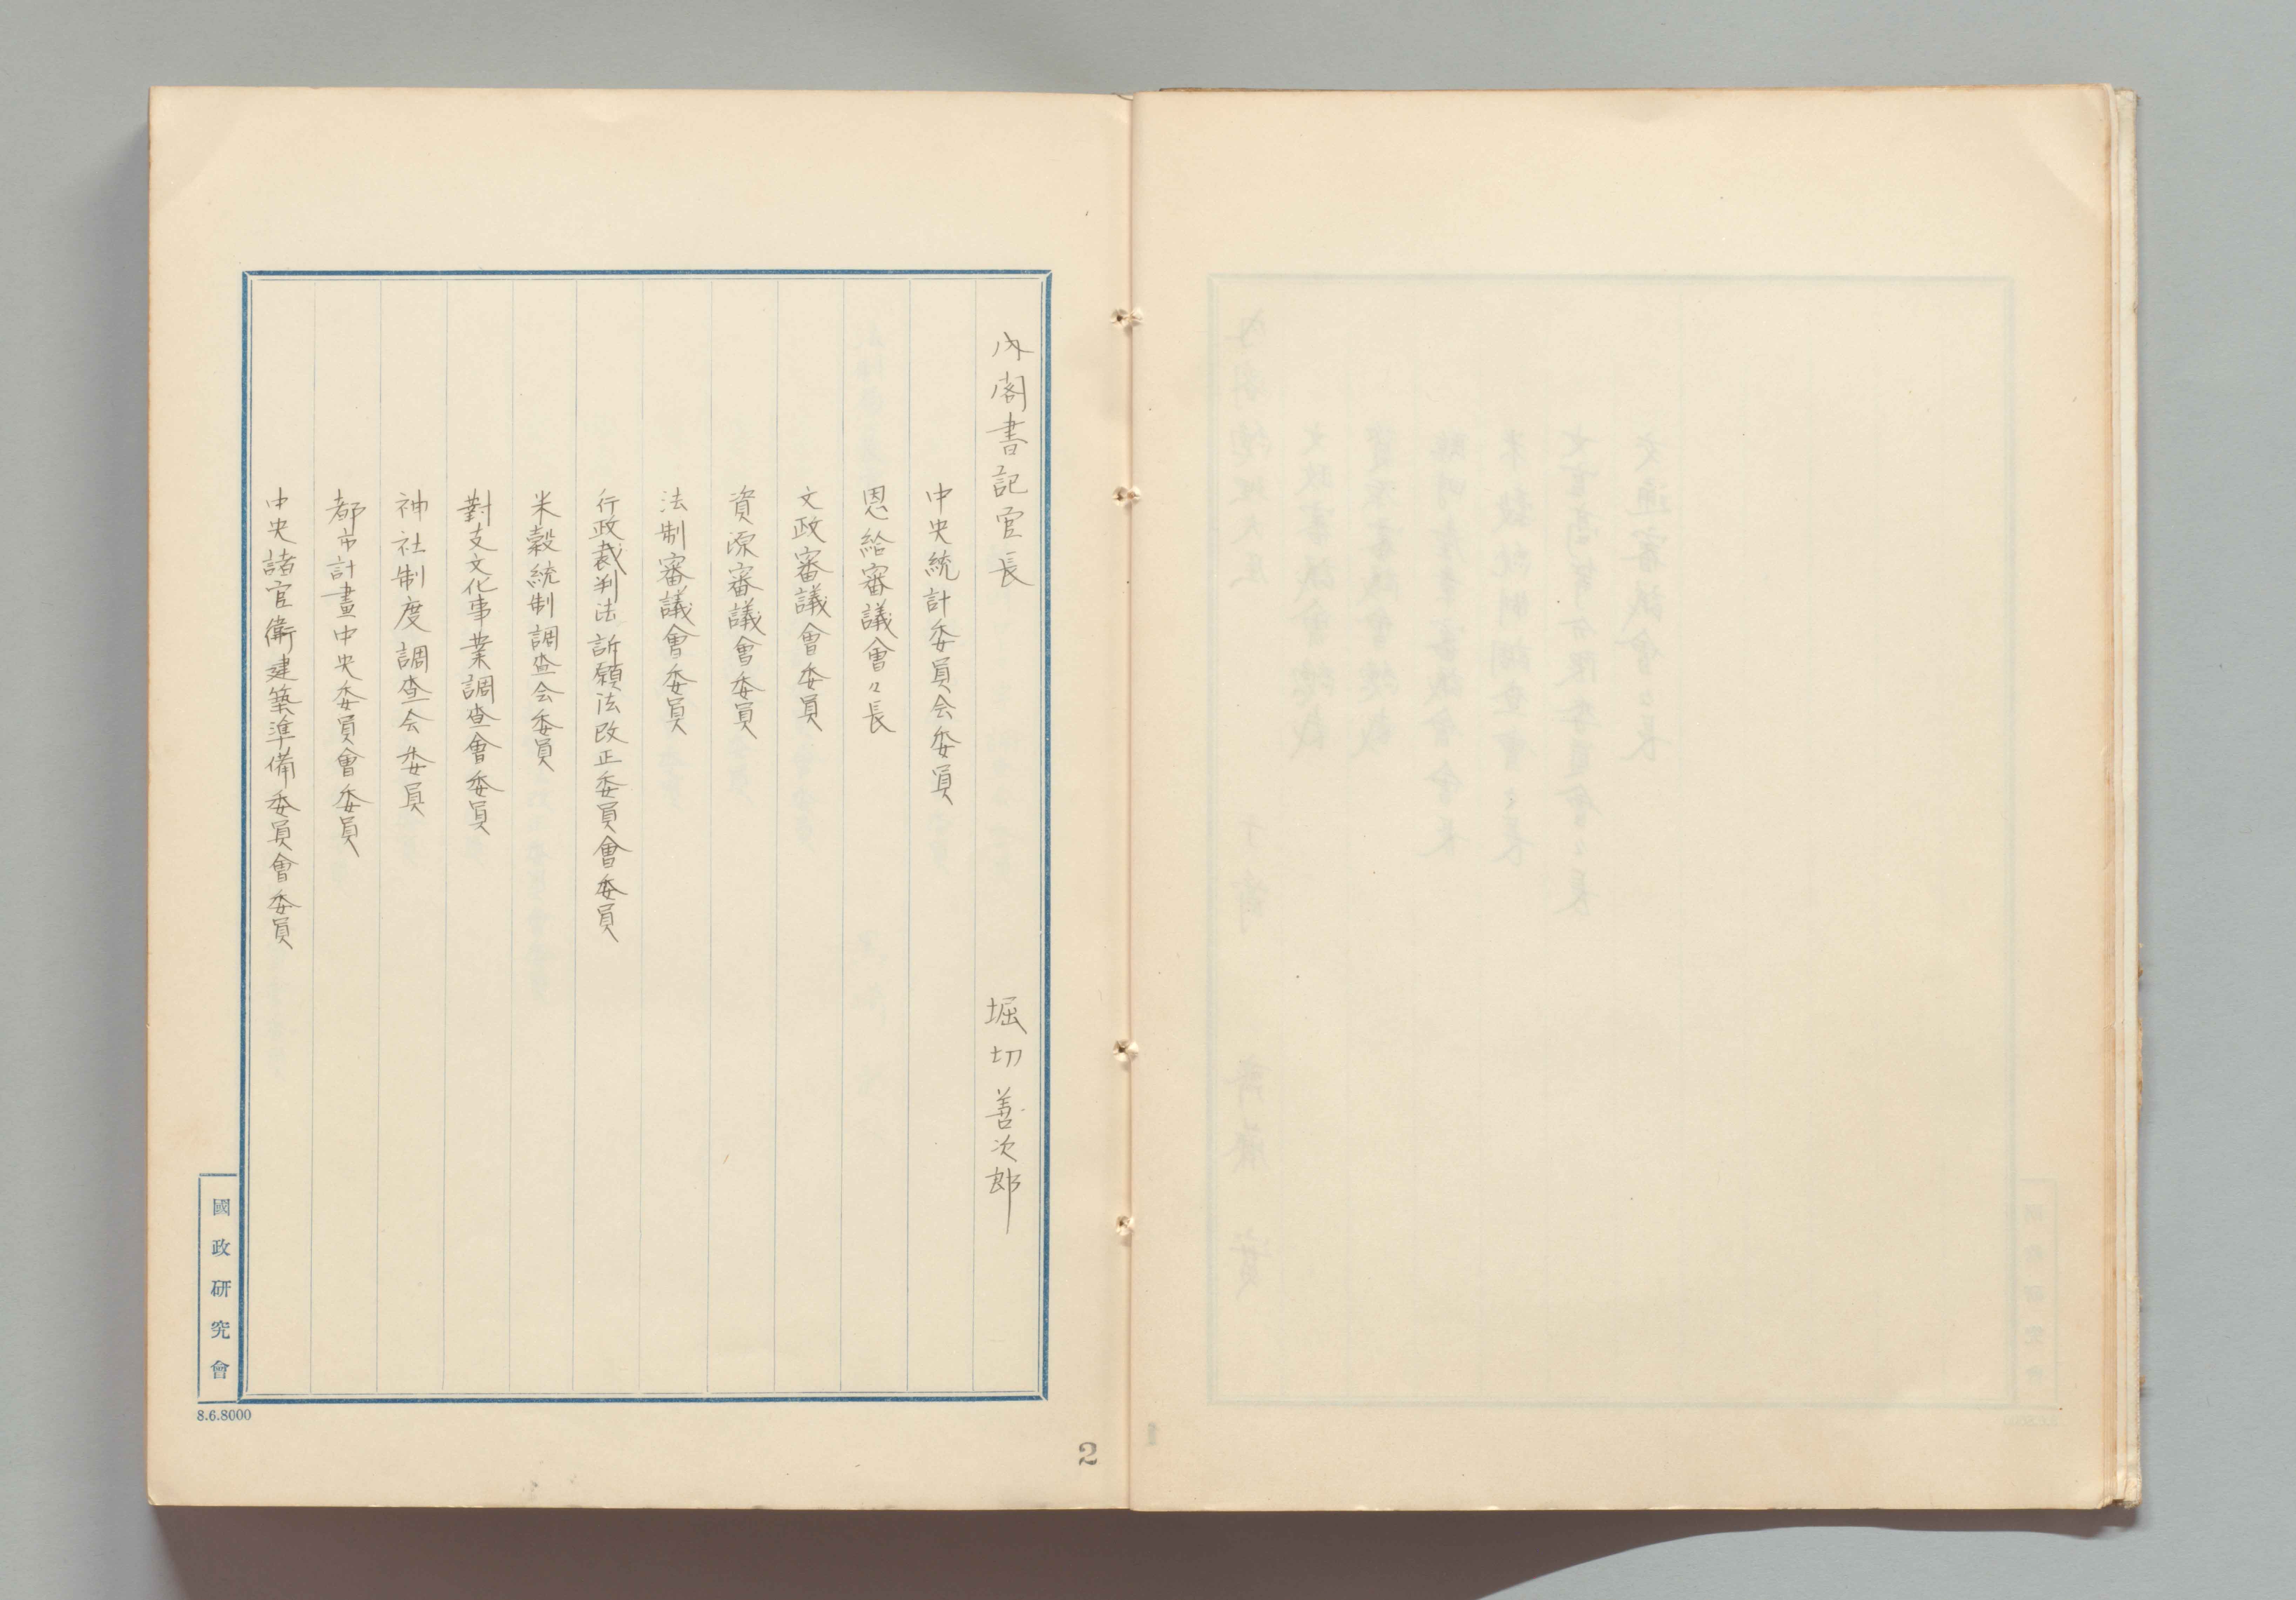 内閣書記官長 堀切善次郎
中央統計委員会委員
恩給審議會々長
文政審議會委員
資源審議會委員
法制審議會委員
行政裁判法訴願法改正委員會委員
米穀統制調査会委員
對支文化事業調査會委員
神社制度調査会委員
都市計畫中央委員會委員
中央諸官衙建築準備委員會委員
國政研究會
8.6.8000
2